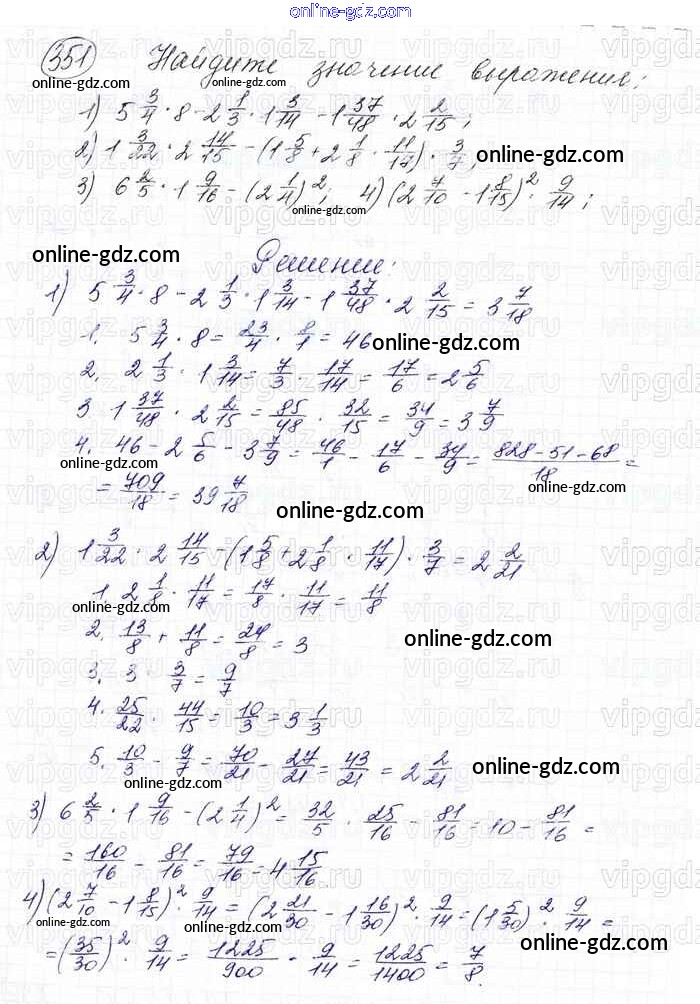 online-gdz.com
351 Найдите значение выражения:
1) 5 3/4 · 8 - 2 1/3 · 1 3/14 - 1 37/48 · 2 2/15;
2) 1 3/22 · 2 14/15 - (1 5/8 + 2 1/8 · 11/17) · 3/7; online-gdz.com
3) 6 2/5 · 1 9/16 - (2 1/4)²; 4) (2 7/10 - 1 8/15)² · 9/14;
online-gdz.com
online-gdz.com Решение:
1) 5 3/4 · 8 - 2 1/3 · 1 3/14 - 1 37/48 · 2 2/15 = 3 7/18
1. 5 3/4 · 8 = 23/4 · 8/1 = 46 online-gdz.com
2. 2 1/3 · 1 3/14 = 7/3 · 17/14 = 17/6 = 2 5/6
3 1 37/48 · 2 2/15 = 85/48 · 32/15 = 34/9 = 3 7/9
4. 46 - 2 5/6 - 3 7/9 = 46/1 - 17/6 - 34/9 = 828-51-68/18 =
online-gdz.com
= 709/18 = 39 7/18 online-gdz.com
2) 1 3/22 · 2 14/15 - (1 5/8 + 2 1/8 · 11/17) · 3/7 = 2 2/21
1. 2 1/8 · 11/17 = 17/8 · 11/17 = 11/8
online-gdz.com
2. 13/8 + 11/8 = 24/8 = 3 online-gdz.com
3. 3 · 3/7 = 9/7
4. 25/22 · 44/15 = 10/3 = 3 1/3
5. 10/3 - 9/7 = 70/21 - 27/21 = 43/21 = 2 2/21 online-gdz.com
online-gdz.com
3) 6 2/5 · 1 9/16 - (2 1/4)² = 32/5 · 25/16 - 81/16 = 10 - 81/16 =
= 160/16 - 81/16 = 79/16 = 4 15/16.
4) (2 7/10 - 1 8/15)² · 9/14 = (2 21/30 - 1 16/30)² · 9/14 = (1 5/30)² · 9/14 =
online-gdz.com
= (35/30)² · 9/14 = 1225/900 · 9/14 = 1225/1400 = 7/8. online-gdz.com
online-gdz.com